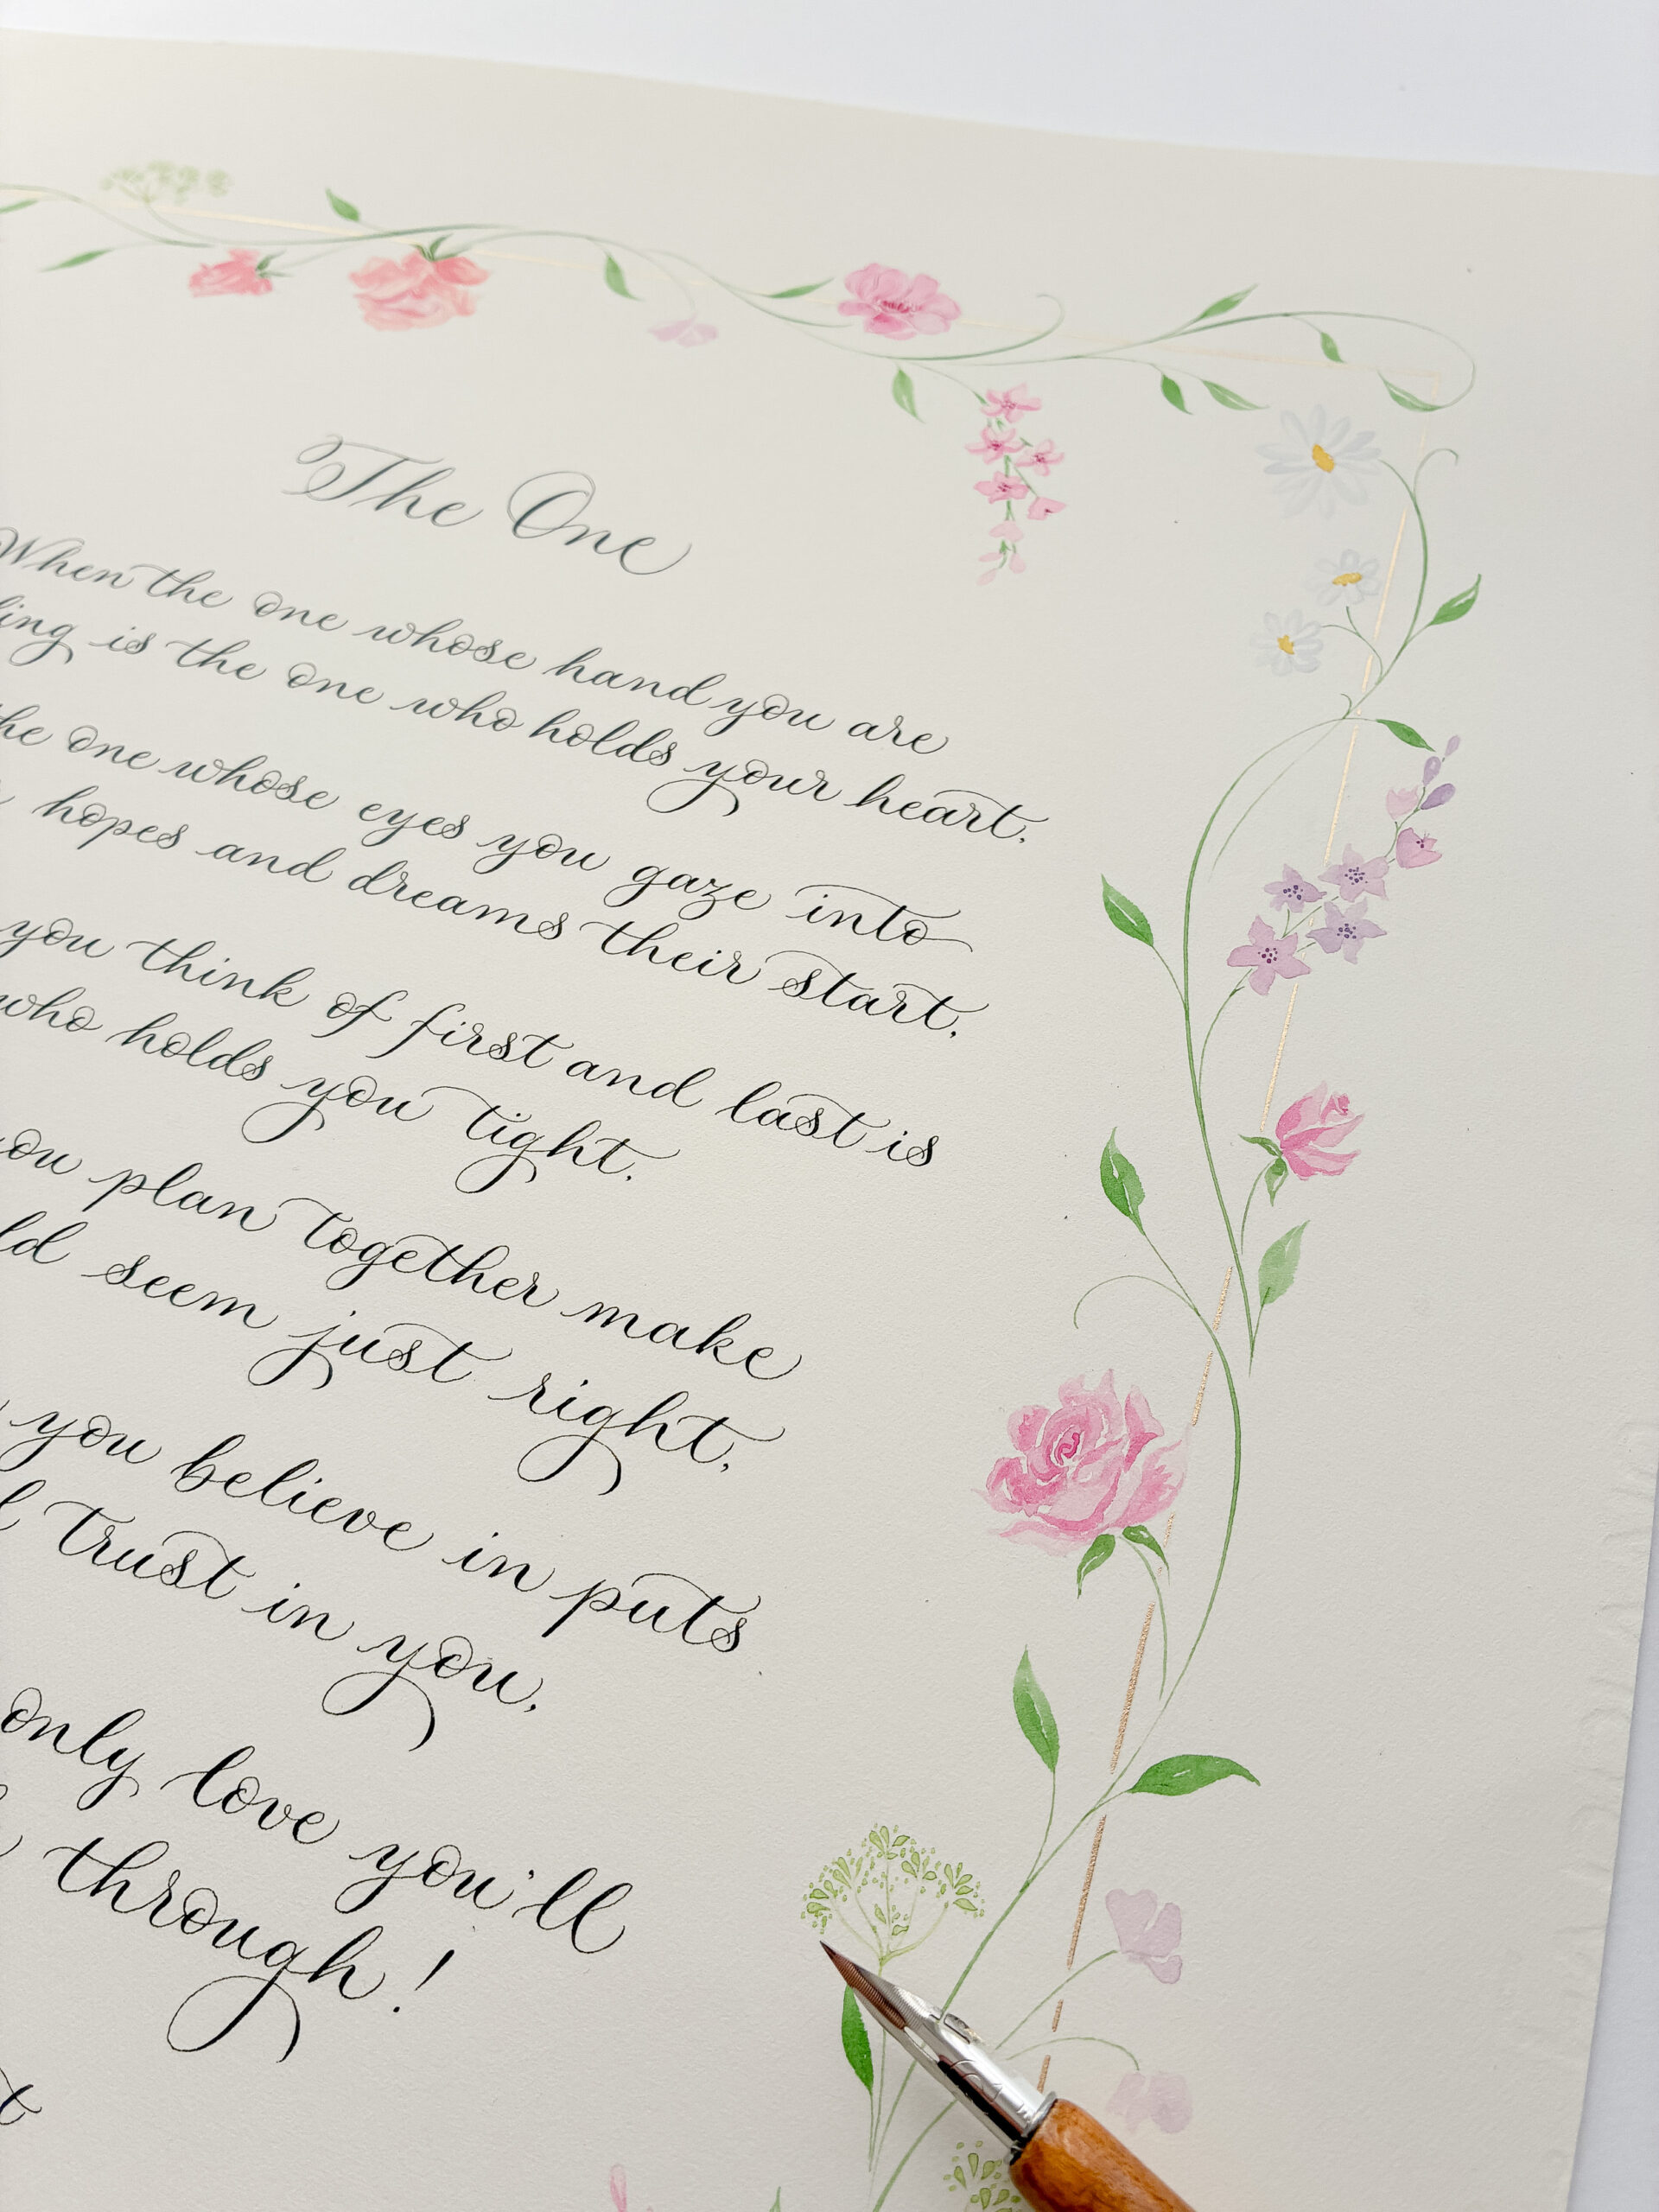 The One
When the one whose hand you are
is the one who holds your heart,
the one whose eyes you gaze into
hopes and dreams their start,
you think of first and last is
who holds you tight,
you plan together make
seem just right,
you believe in puts
trust in you,
only love you'll
through!